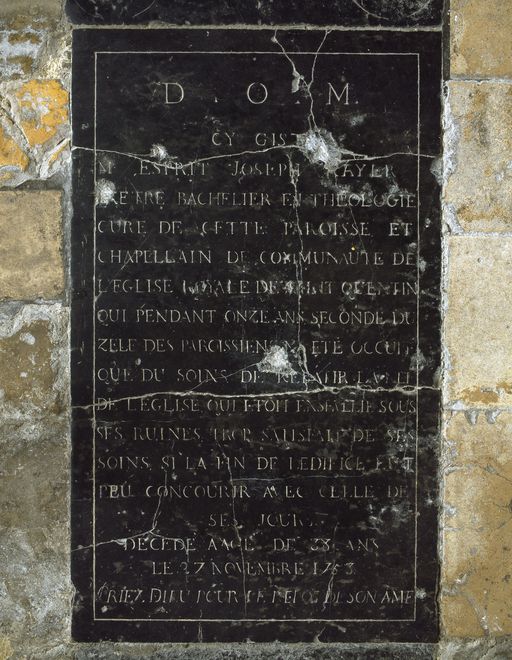 D . O . M.
CY GIST
M ESPRIT JOSEPH
PRETRE BACHELIER EN THEOLOGIE
CURE DE CETTE PAROISSE ET
CHAPELLAIN DE COMMUNAUTE DE
L'EGLISE ROYALE DE SAINT QUENTIN
QUI PENDANT ONZE ANS SECONDE DU
ZELE DES PAROISSIENS N'A ETÉ OCCUPE
QUE DU SOINS DE REBATIR LA NEF
DE L'EGLISE QUI ETOIT ENSEVELIE SOUS
SES RUINES TROP SATISFAIT DE SES
SOINS SI LA FIN DE L'EDIFICE EUT
PEU CONCOURIR AVEC CELLE DE
SES JOURS
DECEDE AAGE DE 38 ANS
LE 27 NOVEMBRE 1753
PRIEZ DIEU POUR LE REPOS DE SON AME